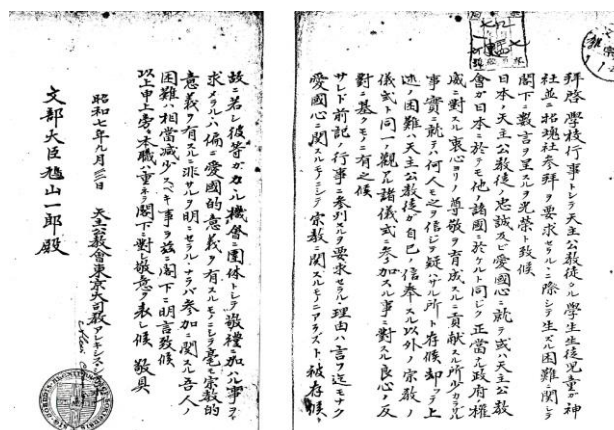 拝啓 學校行事トシテ天主公教徒タル學生生徒児童ガ神
社並ニ招魂社参拝ヲ要求セラルヽニ際シテ生ズル困難ニ関シテ
閣下ニ數言ヲ呈スルヲ光榮ト致候
日本ノ天主公教徒ノ忠誠及ビ愛國心ニ就テ或ハ天主公教
會ガ日本ニ於テモ他ノ諸國ニ於ケルト同ジク正當ナル政府權
威ニ對スル衷心ヨリノ尊敬ヲ育成スルニ貢献スル所少カラザル
事實ニ就テハ何人モ之ヲ信ジテ疑ハザル所ト存候却ツテ上
述ノ困難ハ天主公教徒ガ自己ノ信奉スル以外ノ宗教ノ
儀式ト同一ノ觀アル諸儀式ニ参加スル事ニ對スル良心ノ反
對ニ基クモノニ有之候
サレド前記ノ行事ニ参列スルヲ要求セラルヽ理由ハ言フ迄モナク
愛國心ニ関スルモノニシテ宗教ニ関スルモノニアラズト被存候
故ニ若シ彼等ガカヽル機會ニ團体トシテ敬禮ニ加ハル事ヲ
求メラルヽハ偏ニ愛國的意義ヲ有スルモノニシテ毫モ宗教的
意義ヲ有スルニ非ザルヲ明ニセラルヽナラバ参加ニ関スル吾人ノ
困難ハ相當減少スベキ事ヲ茲ニ閣下ニ明言致候
以上申上旁々本職ハ重ネテ閣下ニ對シ敬意ヲ表シ候 敬具
昭和七年九月 日 天主公教會東京大司教アレキシス・シ
文部大臣鳩山一郎殿